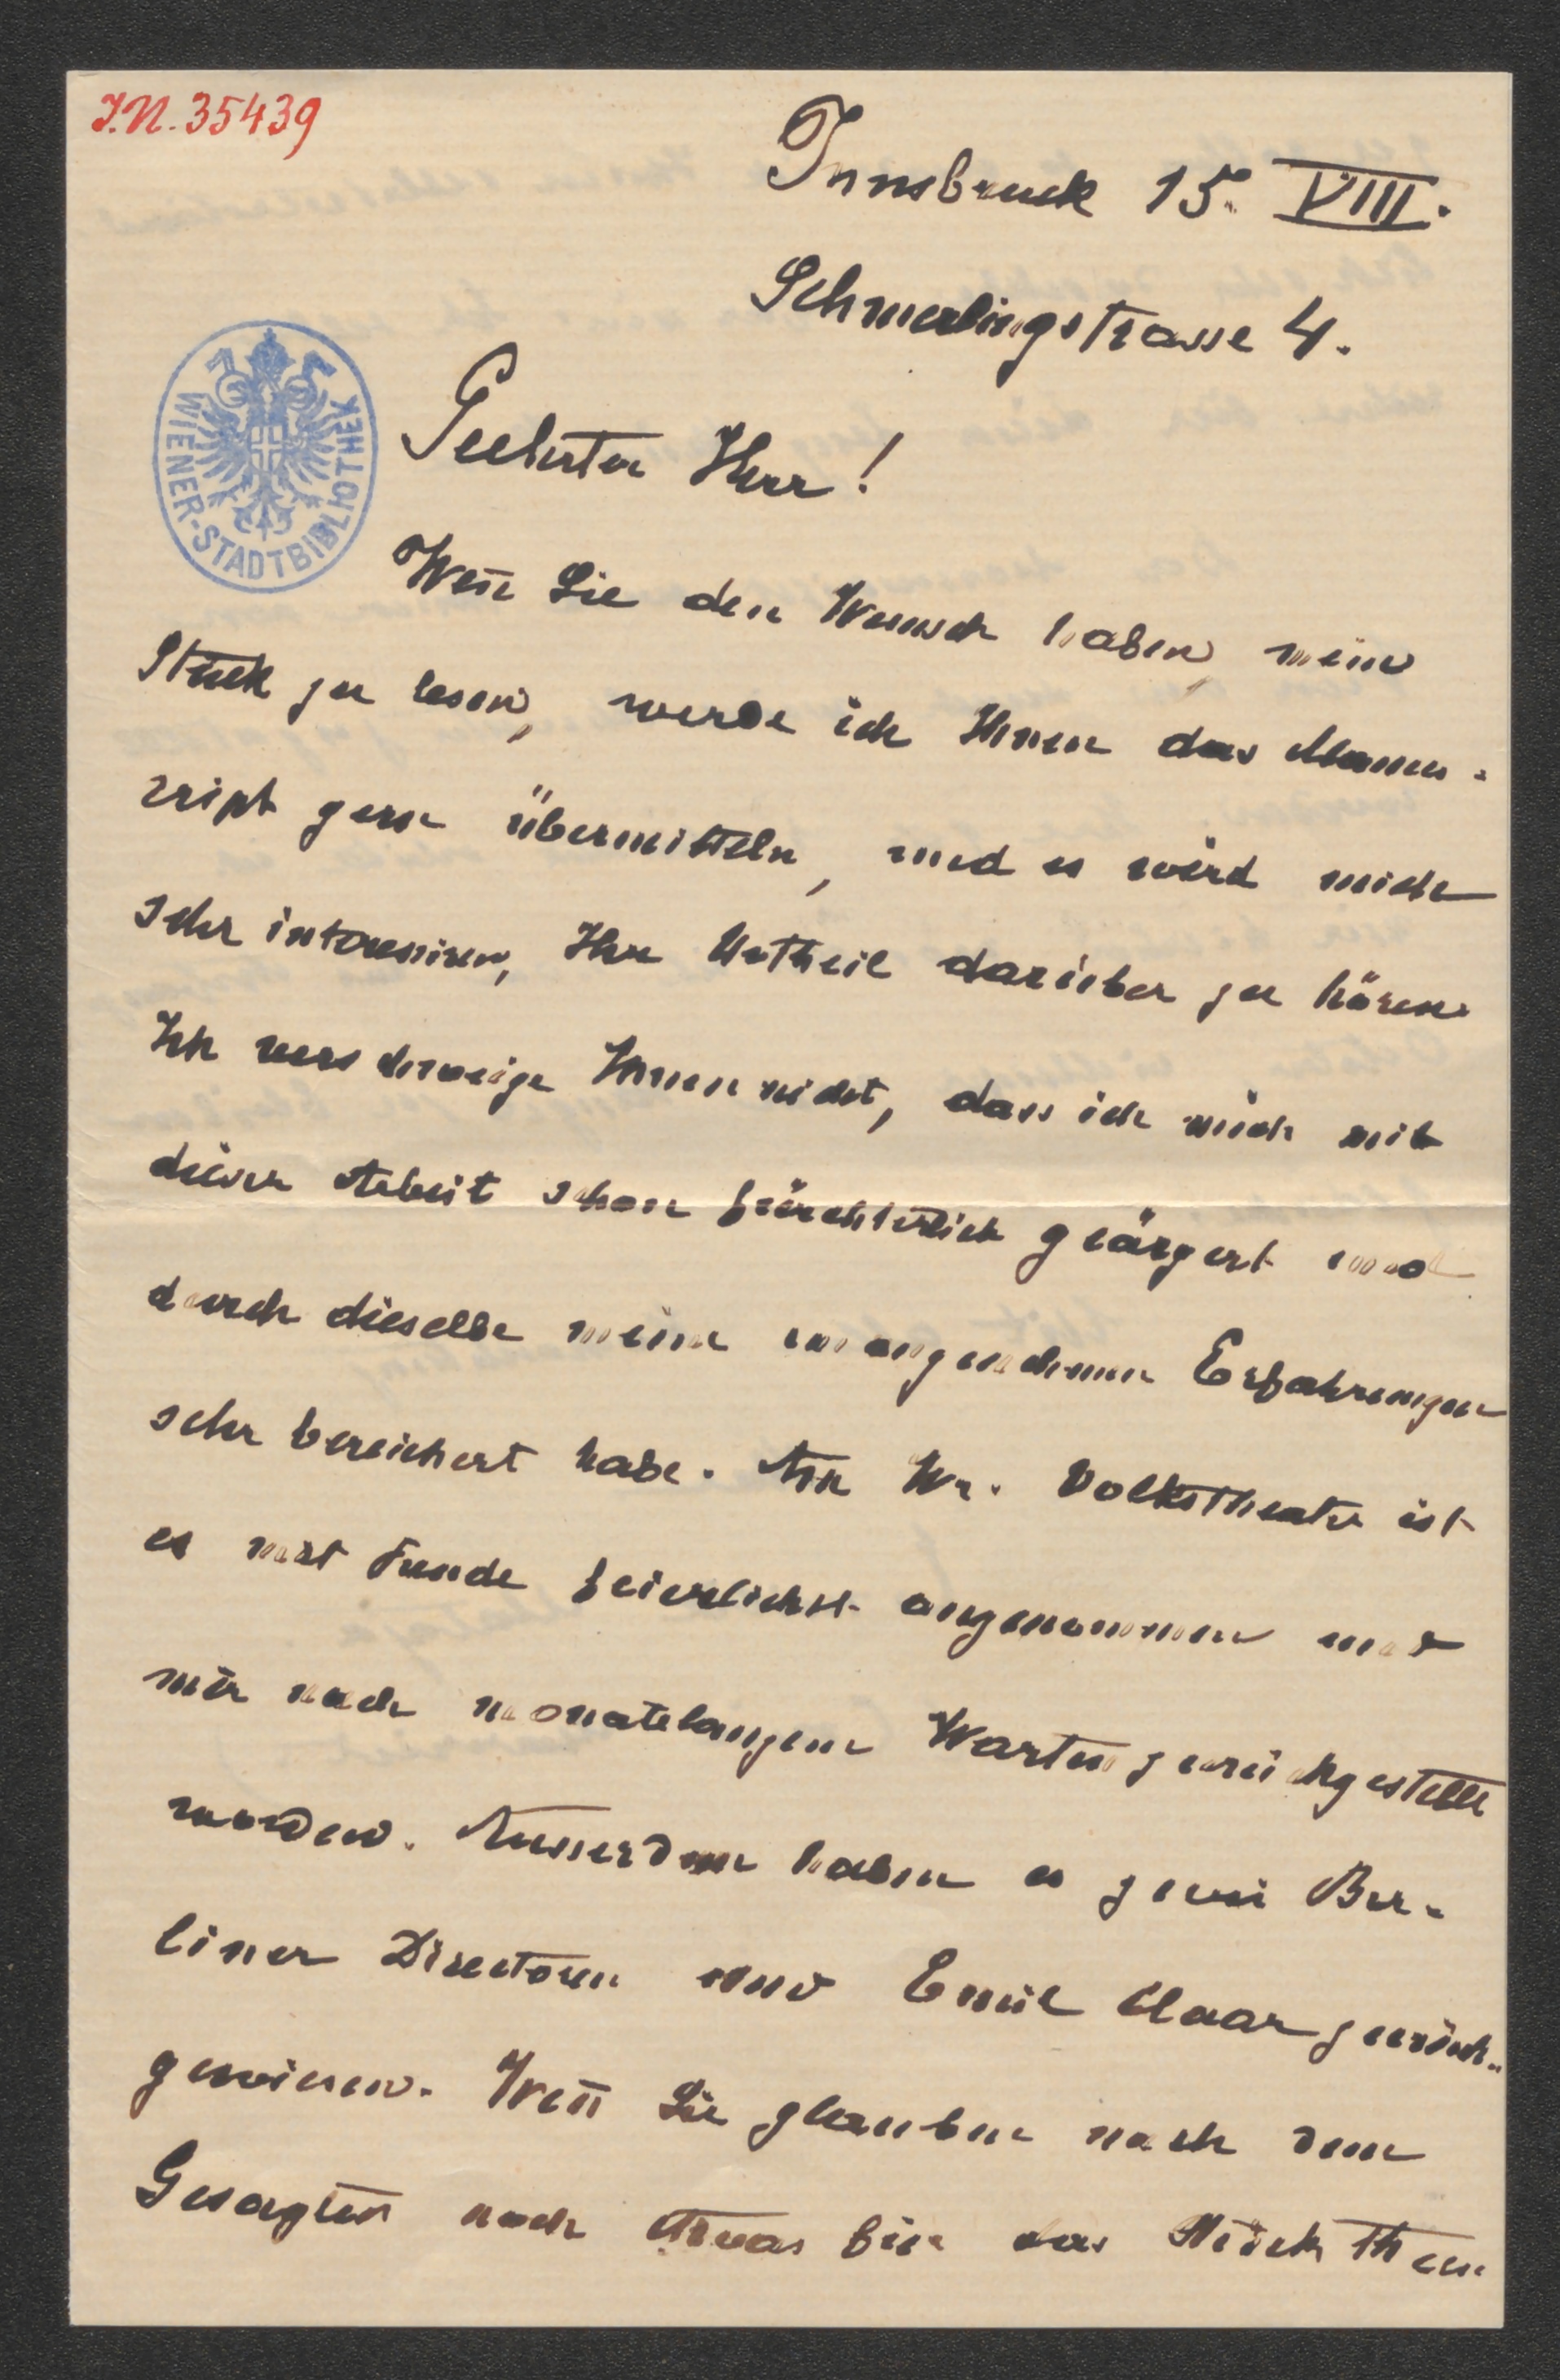 J.N. 35439
Innsbruck 15. VIII.
Schmerlingstrasse 4.
WIENER-STADTBIBLIOTHEK
Geehrter Herr!
Wen̄ Sie den Wunsch haben, mein
Stück zu lesen, werde ich Ihnen das Manu-
script gern übermitteln, und es wird mich
sehr interessiren, Ihr Urtheil darüber zu hören.
Ich verschweige Ihnen nicht, dass ich mich mit
dieser Arbeit schon fürchterlich geärgert und
durch dieselbe meine unangenehmen Erfahrungen
sehr bereichert habe. Am Wr. Volkstheater ist
es mit Ende feierlichst angenommen und
mir nach monatelangem Warten zurückgestellt
worden. Ausserdem haben es zwei Ber-
liner Directoren und Emil Claar zurück-
gewiesen. Wen̄ Sie glauben nach dem
Gesagten noch etwas für das Stück thun